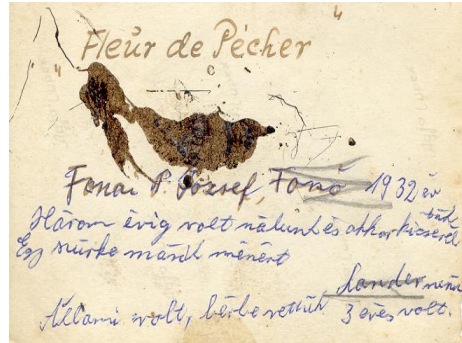 "Fleur de Pécher"
Fonai P. József, Fonó 1932 év
Három évig volt nálunk és akkor kicserél
ték
Egy szürke ménért
Sandor nevű
Állami volt, bérbe vettük 3 éves volt.